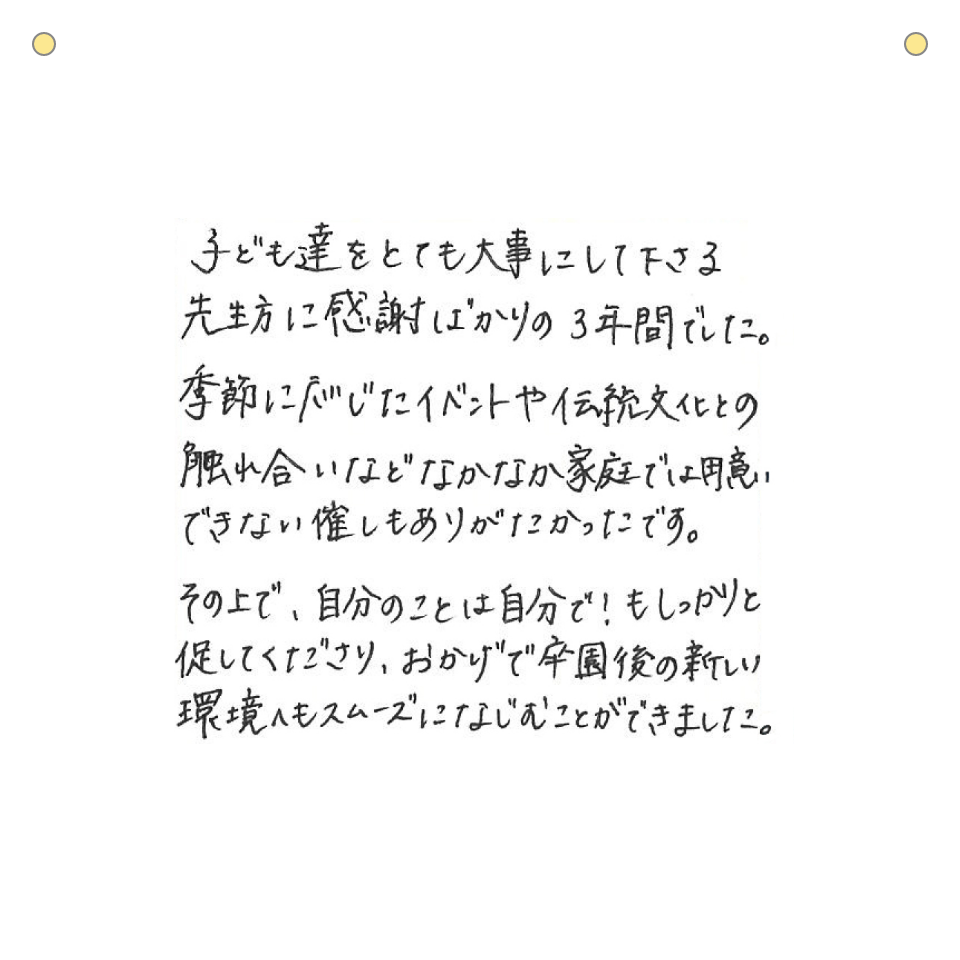 子ども達をとても大事にして下さる
先生方に感謝ばかりの3年間でした。
季節に応じたイベントや伝統文化との
触れ合いなどなかなか家庭では用意
できない催しもありがたかったです。
その上で、自分のことは自分で!もしっかりと
促してくださり、おかげで卒園後の新しい
環境へもスムーズになじむことができました。